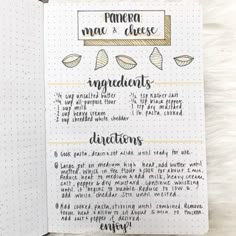 panera
mac & cheese
ingredients
¼ cup unsalted butter
¼ cup all-purpose flour
1 cup milk
2 cup heavy cream
2 cup shredded white cheddar
tsp kosher salt
tsp black pepper
1 lb. pasta, cooked
directions
① Cook pasta, drain & set aside until ready for use.
② Large pot on medium high heat, add butter until
melted. Whisk in the flour & cook for about 2 min.
Reduce heat to medium & add milk, heavy cream,
salt, pepper & dry mustard. Continue whisking
until it begins to bubble. Reduce to low &
add white cheddar. Stir until melted.
③ Add cooked pasta, stirring until combined. Remove
from heat & allow to sit about 5 min. to thicken.
Add salt & pepper if desired.
enjoy!